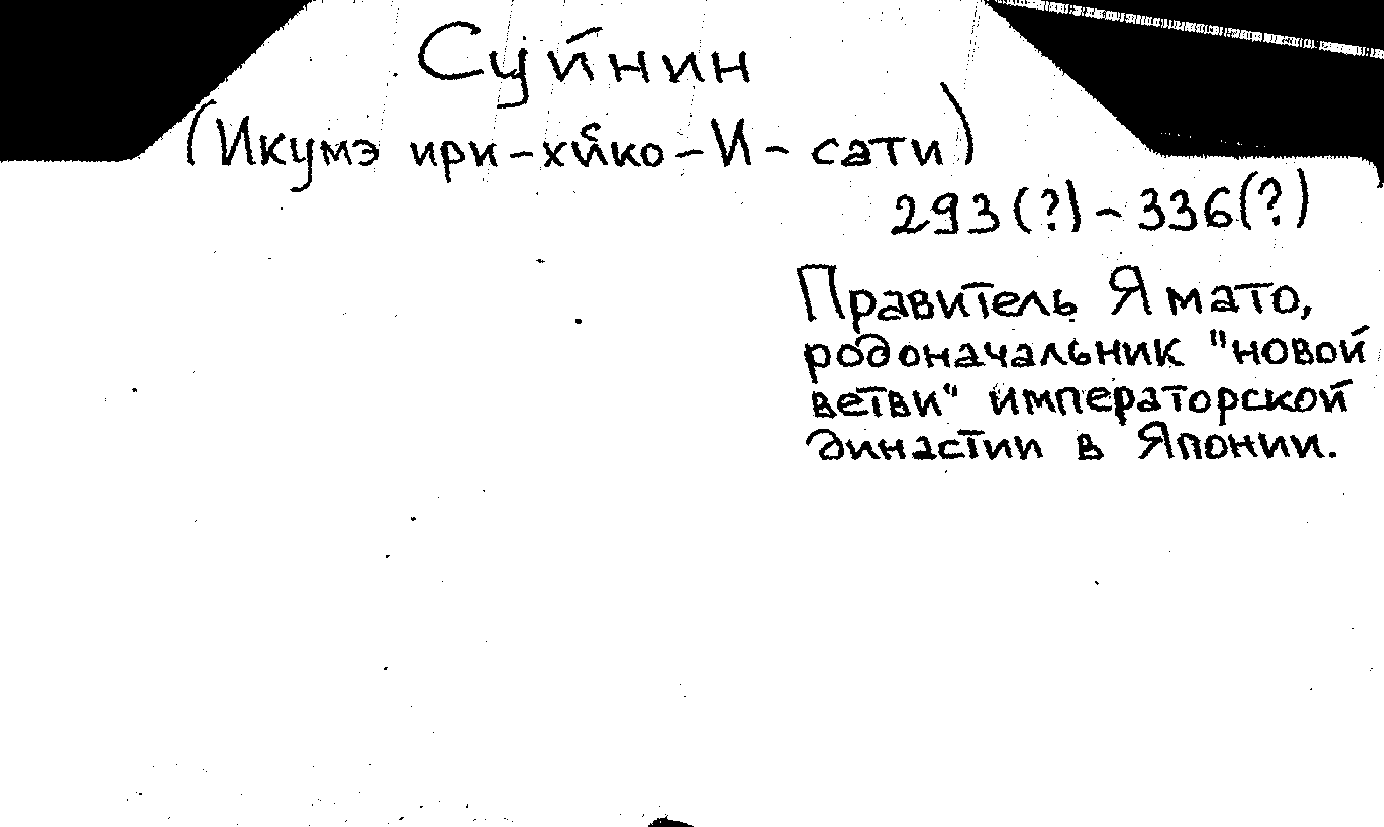 Суйнин
(Икумэ ири-хико-И-сати)
293(?)-336(?)
Правитель Ямато,
родоначальник "новой
ветви" императорской
династии в Японии.